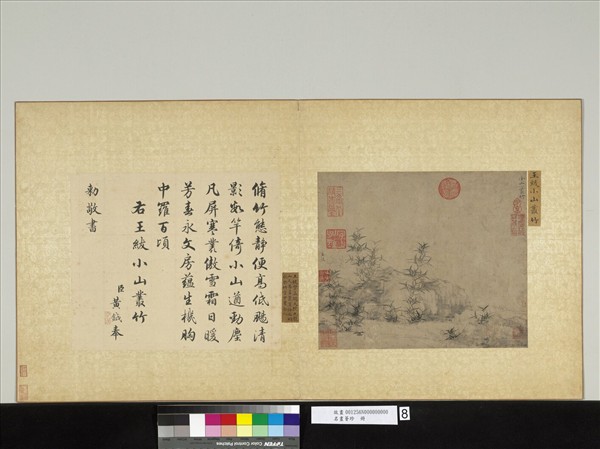 王紱小山叢竹
脩竹態靜便高低颺清
影數竿倚小山遒勁塵
凡屏寒叢傲雪霜日暖
芳春永文房蘊生機胸
中羅百頃
右王紱小山叢竹
臣黃鉞奉
勑敬書
TIFFEN Color Control Patches
8